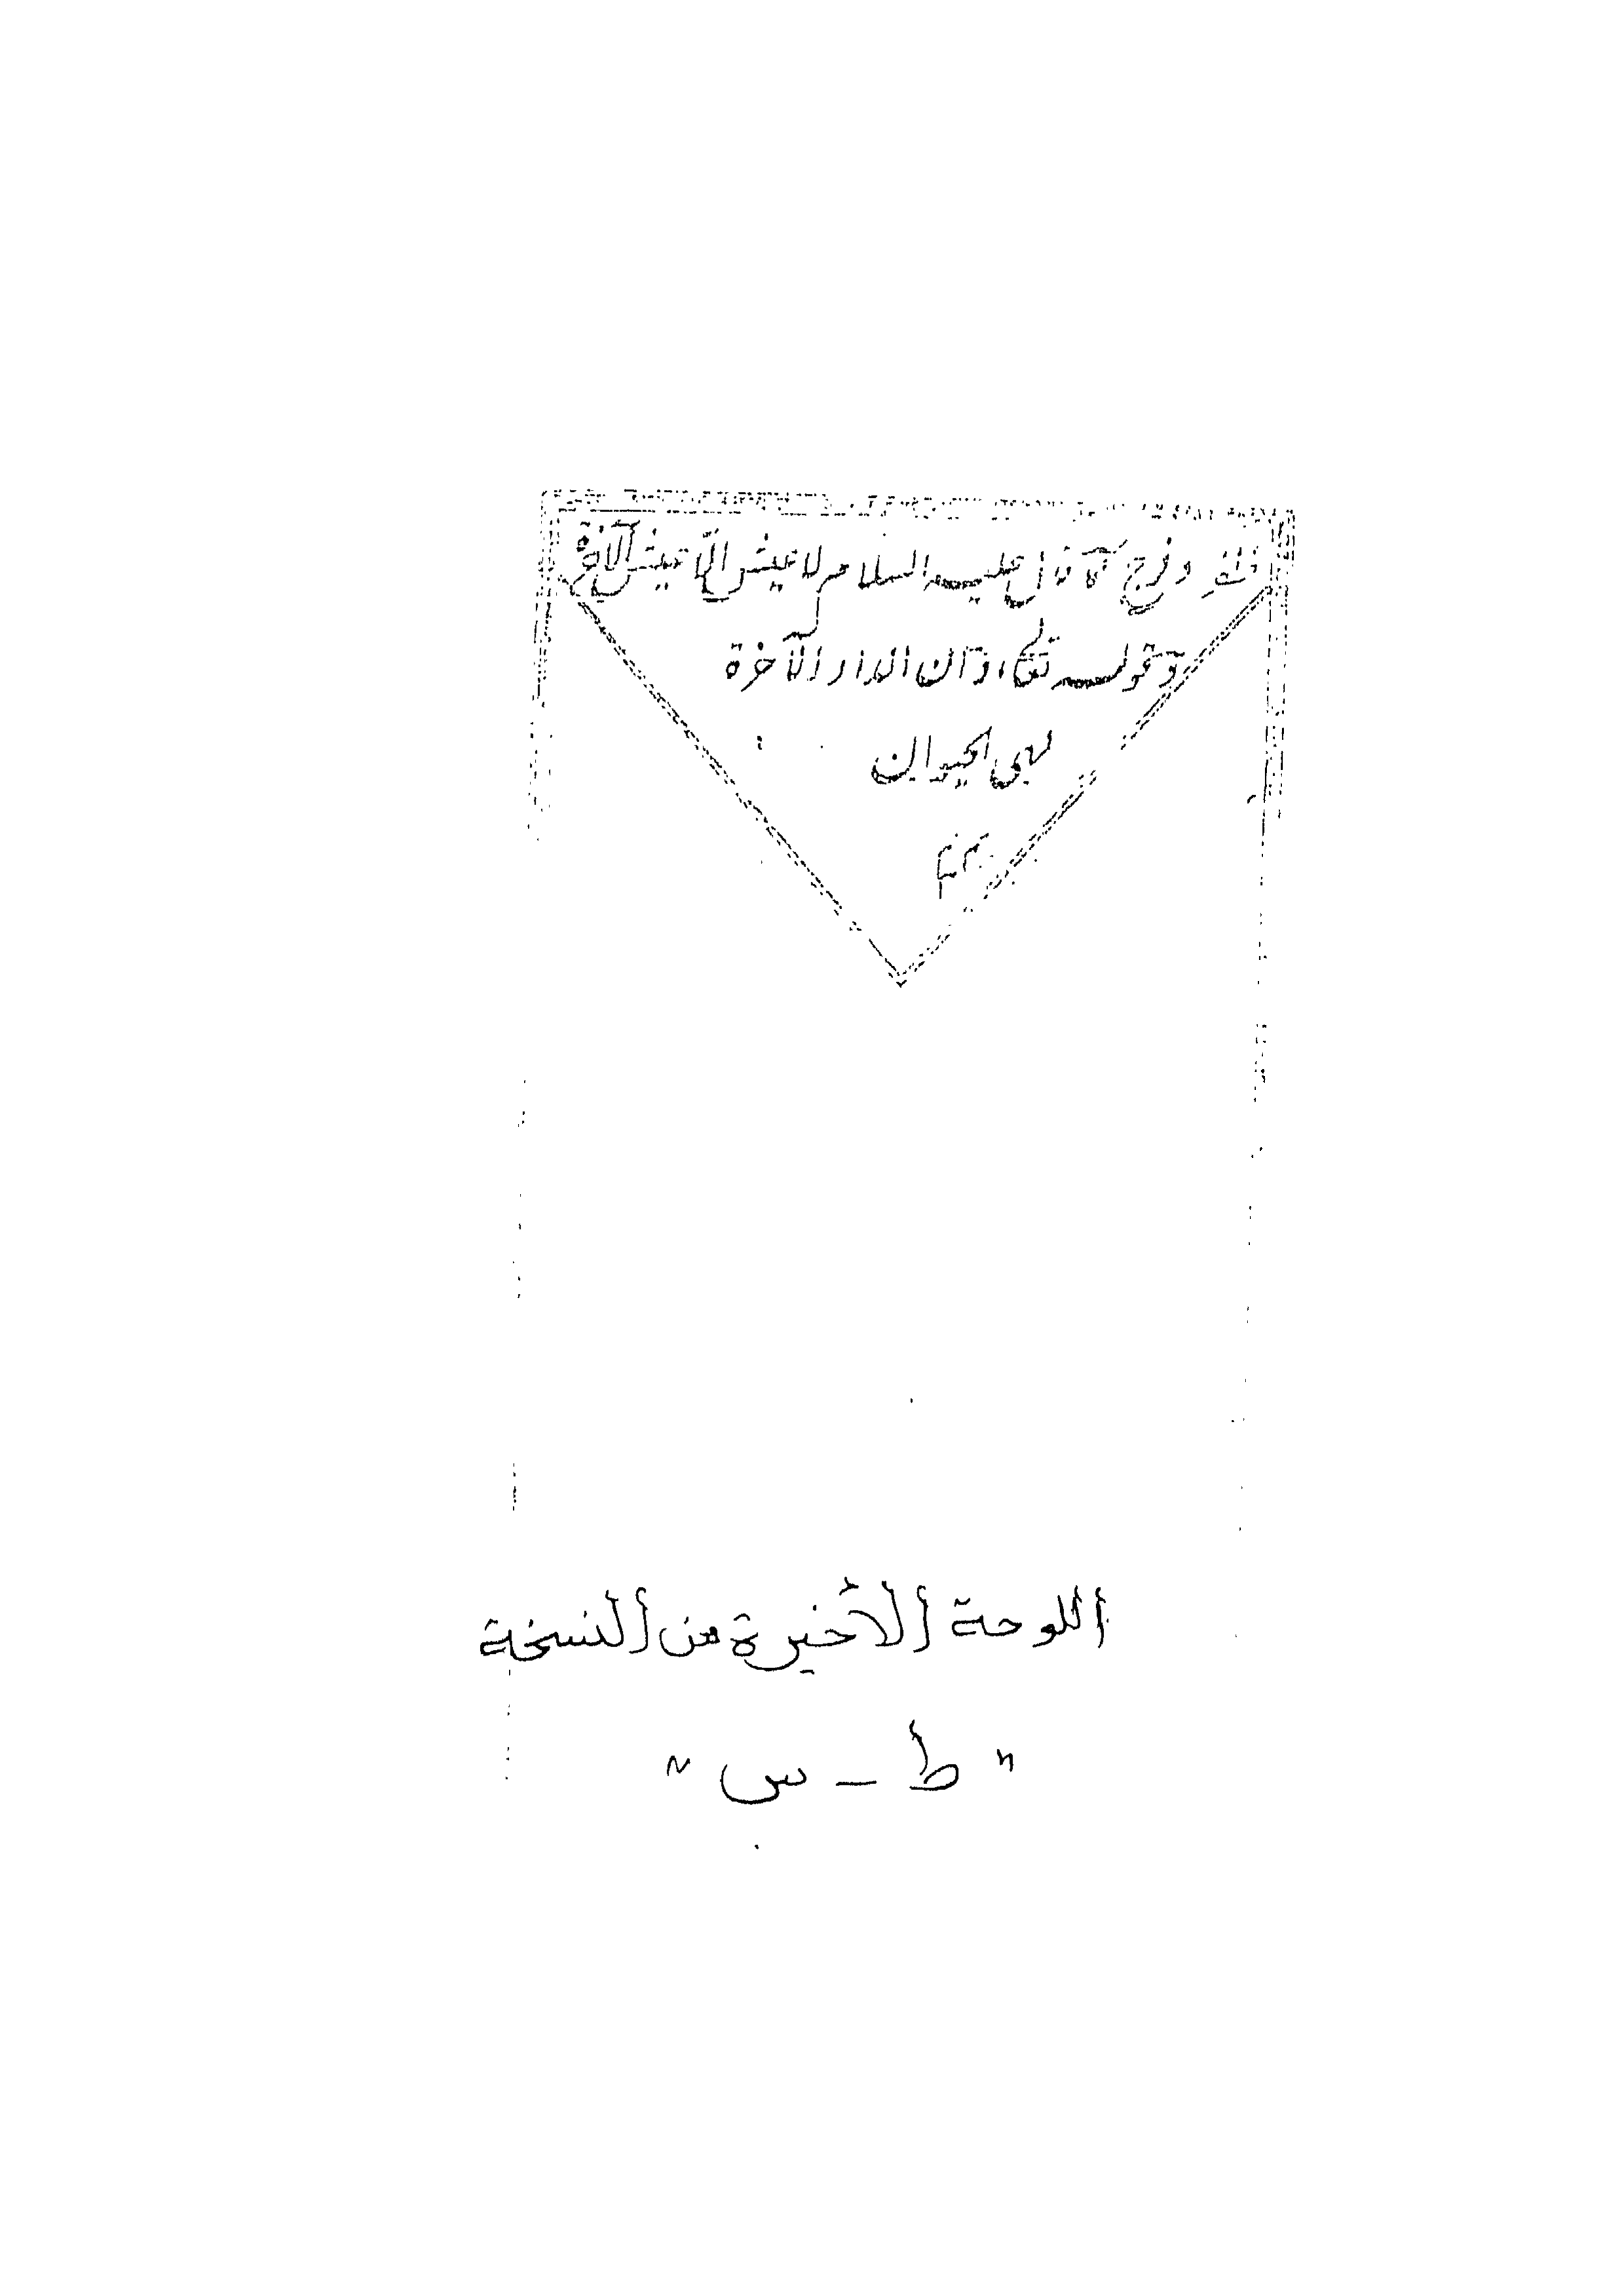 وفرح كما قال عليه السلام لا عيش الا عيش الآخرة
وقوله تعالى وان الدار الآخرة
لهى الحيوان
تم
اللوحة الأخيرة من النسخة
" ط - س "